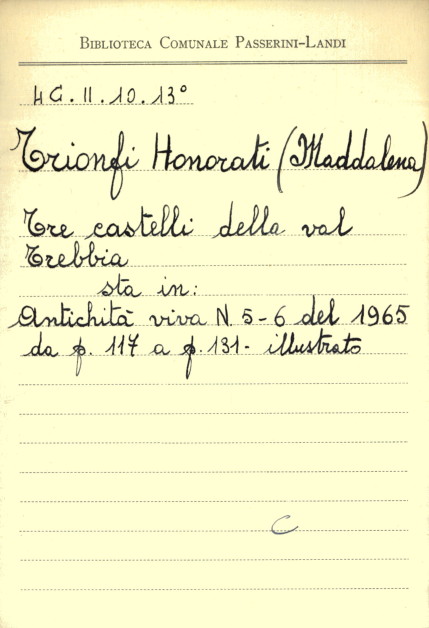 BIBLIOTECA COMUNALE PASSERINI-LANDI
4G.II.10.13°
Trionfi Honorati (Maddalena)
Tre castelli della val
Trebbia
sta in:
Antichità viva N. 5-6 del 1965
da p. 117 a p. 131- illustrato
C